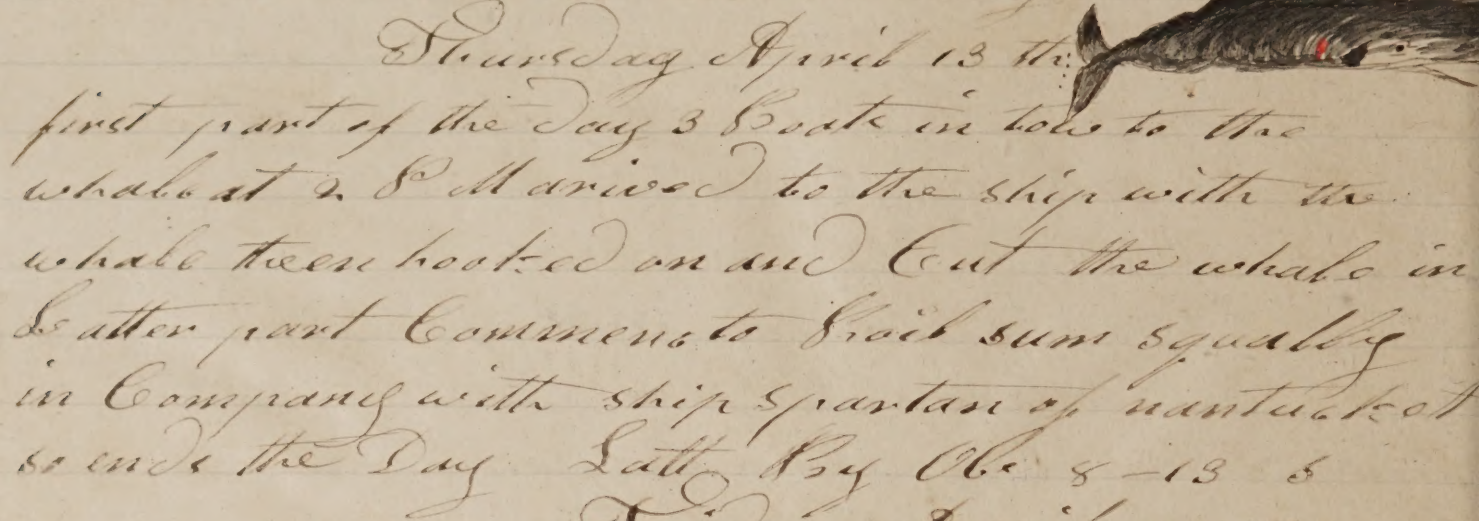 Thursday April 13 th
first part of the Day 3 Boats in tow to the
whale at 2 P M arived to the ship with the
whale then hooked on and Cut the whale in
Latter part Commenc to Boil sum squally
in Company with ship spartan of nantucket
so ends the Day Latt By Ob 8 - 13 S